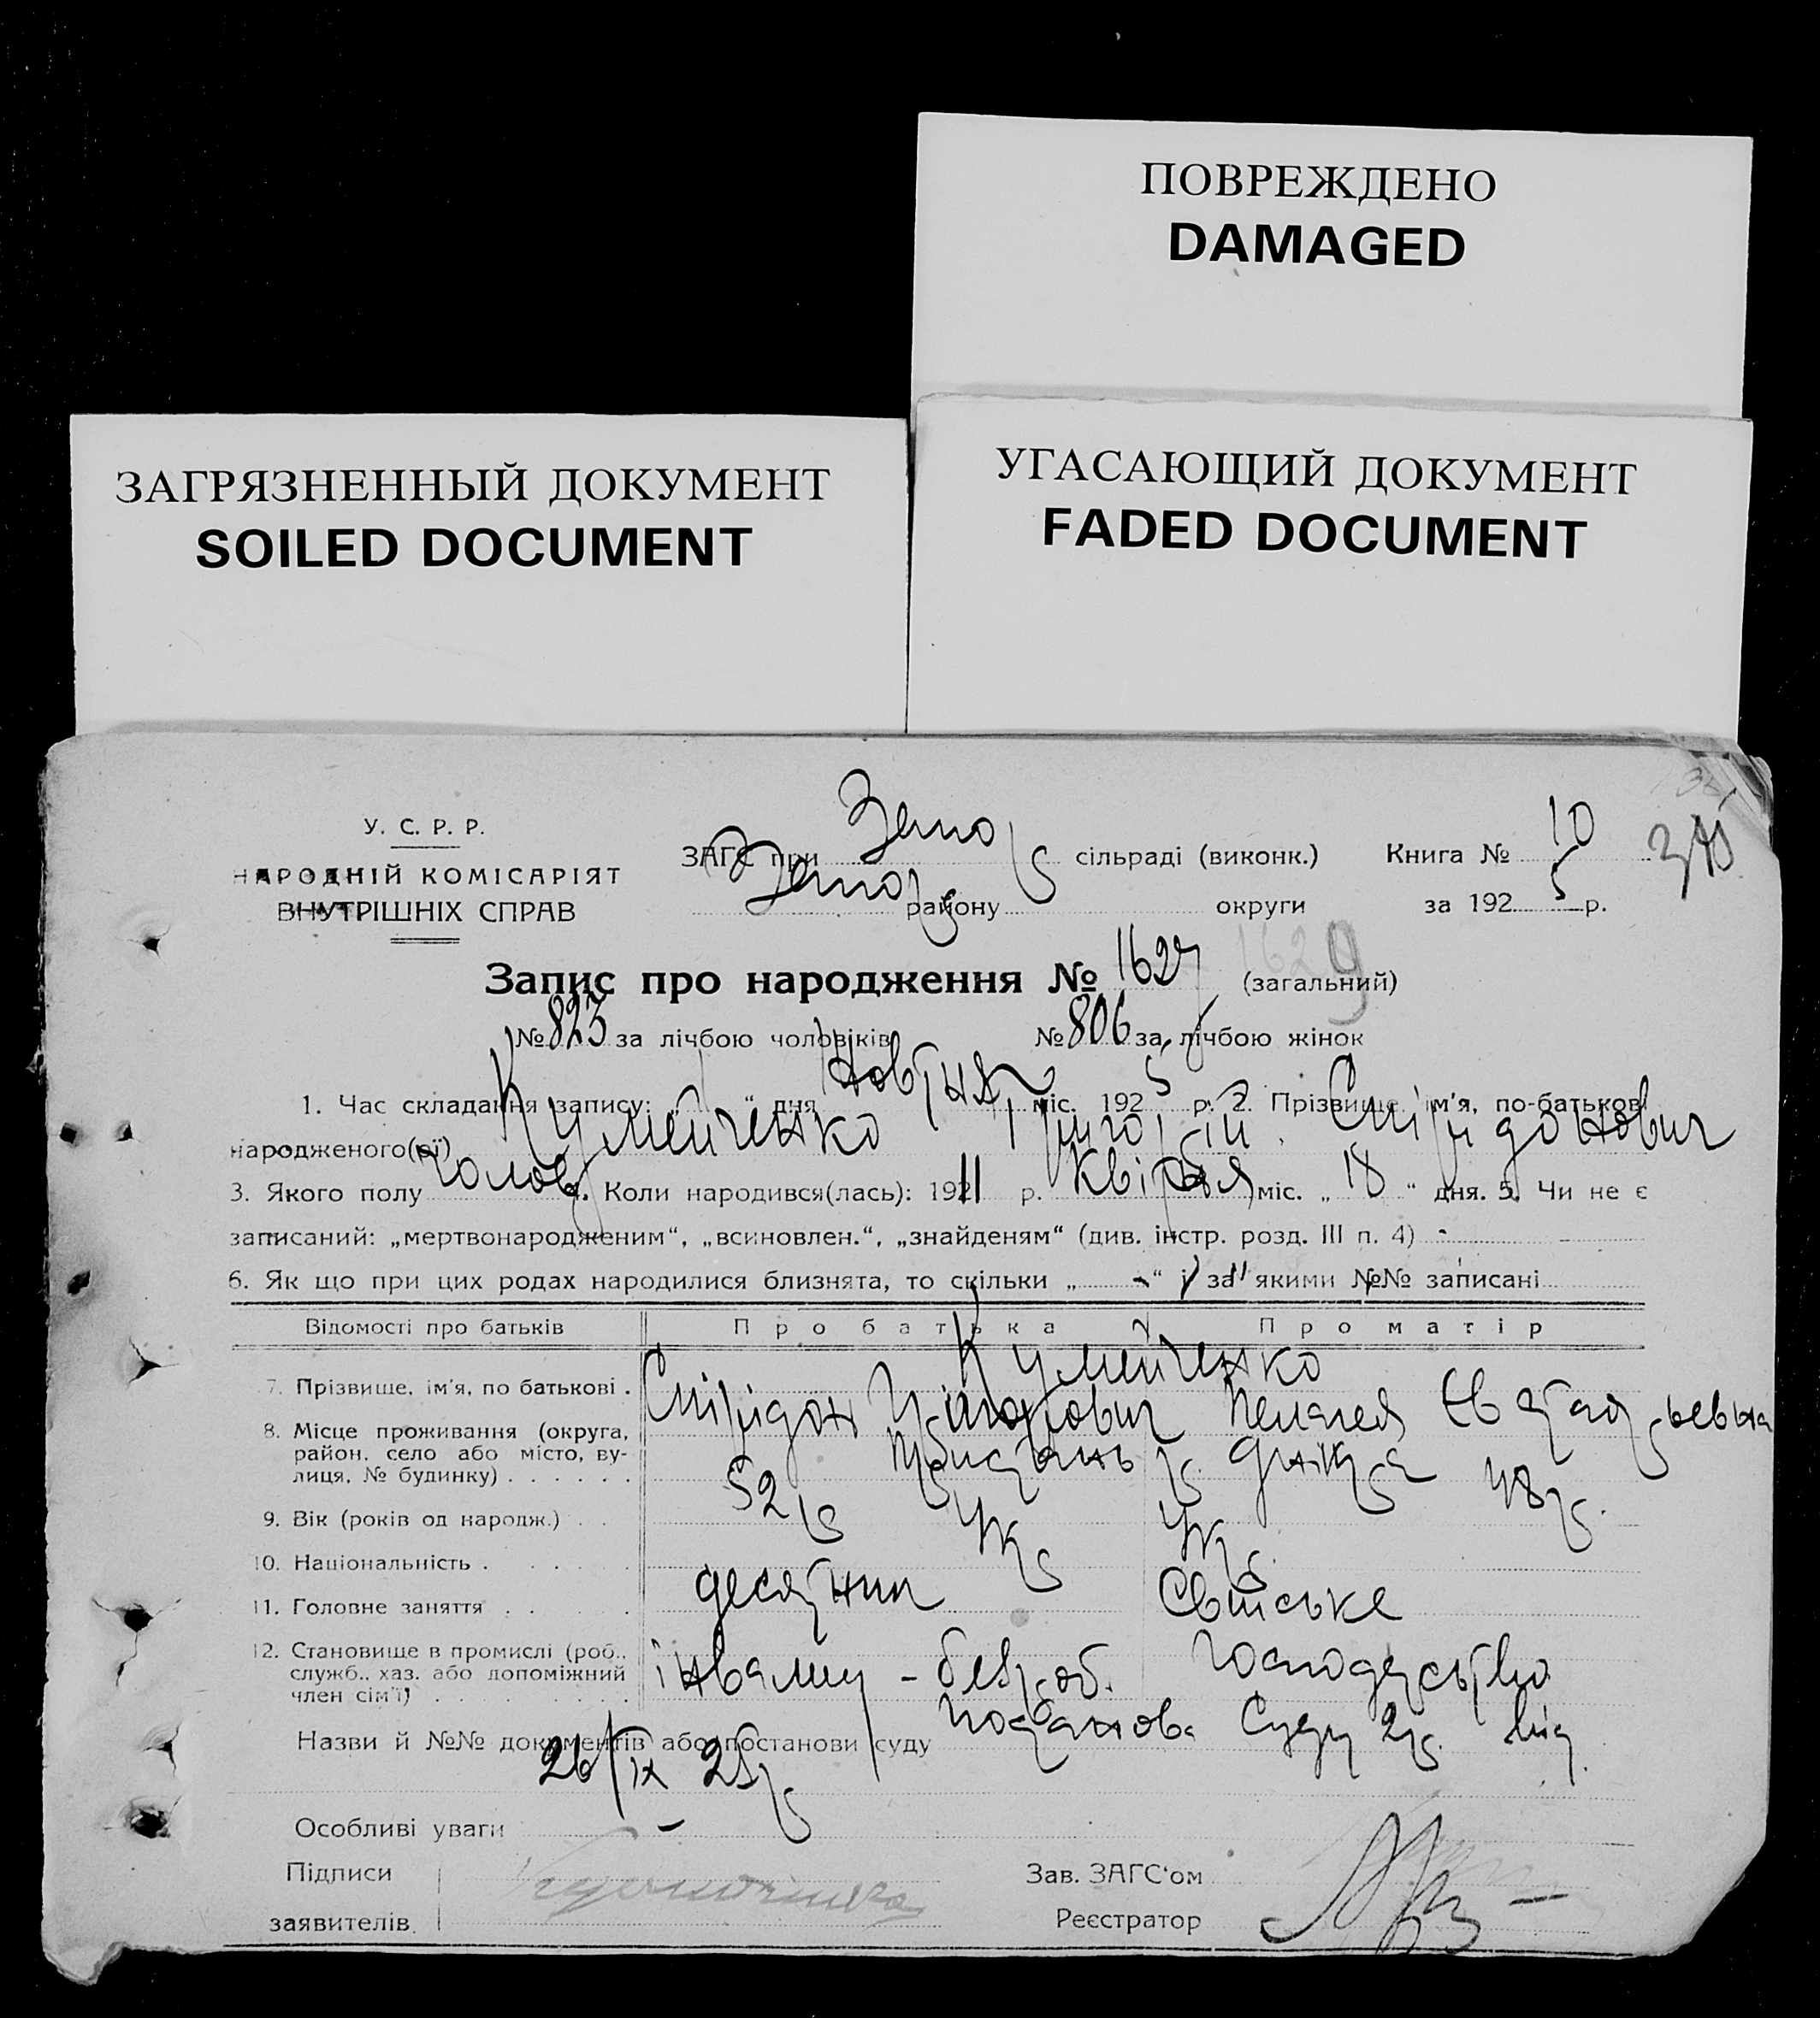 ПОВРЕЖДЕНО
DAMAGED
ЗАГРЯЗНЕННЫЙ ДОКУМЕНТ
SOILED DOCUMENT
УГАСАЮЩИЙ ДОКУМЕНТ
FADED DOCUMENT
У. С. Р. Р.
НАРОДНІЙ КОМІСАРІЯТ
ВНУТРІШНІХ СПРАВ
ЗАГС при Запор сільраді (виконк.) Книга № 10
Запор району округи за 1925 р.
Запис про народження № 1627 1629 (загальний)
№ 823 за лічбою чоловіків № 806 за лічбою жінок
1. Час складання запису: „ “ дня Новтня міс. 1925 р. 2. Прізвище, ім'я, по-батькові
народженого(ої) Кумейченко Григорій Спірідонович
3. Якого полу чолов 4. Коли народився(лась): 1911 р. Квітня міс. „ 18 “ дня. 5. Чи не є
записаний: „мертвонародженим“, „всиновлен.“, „знайденям“ (див. інстр. розд. III п. 4) -
6. Як що при цих родах народилися близнята, то скільки „ - “ і за якими №№ записані
Відомості про батьків Про батька Про матір
Кумейченко
7. Прізвище, ім'я, по батькові . Спірідон Пелагея
8. Місце проживання (округа, район, село або місто, вулиця, № будинку) . . . . . . Пристань р. Дніпра
9. Вік (років од народж.) . . 52 р 48 р.
10. Національність . . . . . Укр Укр.
11. Головне заняття . . . . десятник Свійське
12. Становище в промислі (роб., служб., хаз. або допоміжний член сім'ї) . . . . . . . інвалид - безроб. господарство
Назви й №№ документів або постанови суду Постанова Суду 2 р. від
26/IX 25 р.
Особливі уваги -
Підписи Зав. ЗАГС'ом
заявителів. Реєстратор